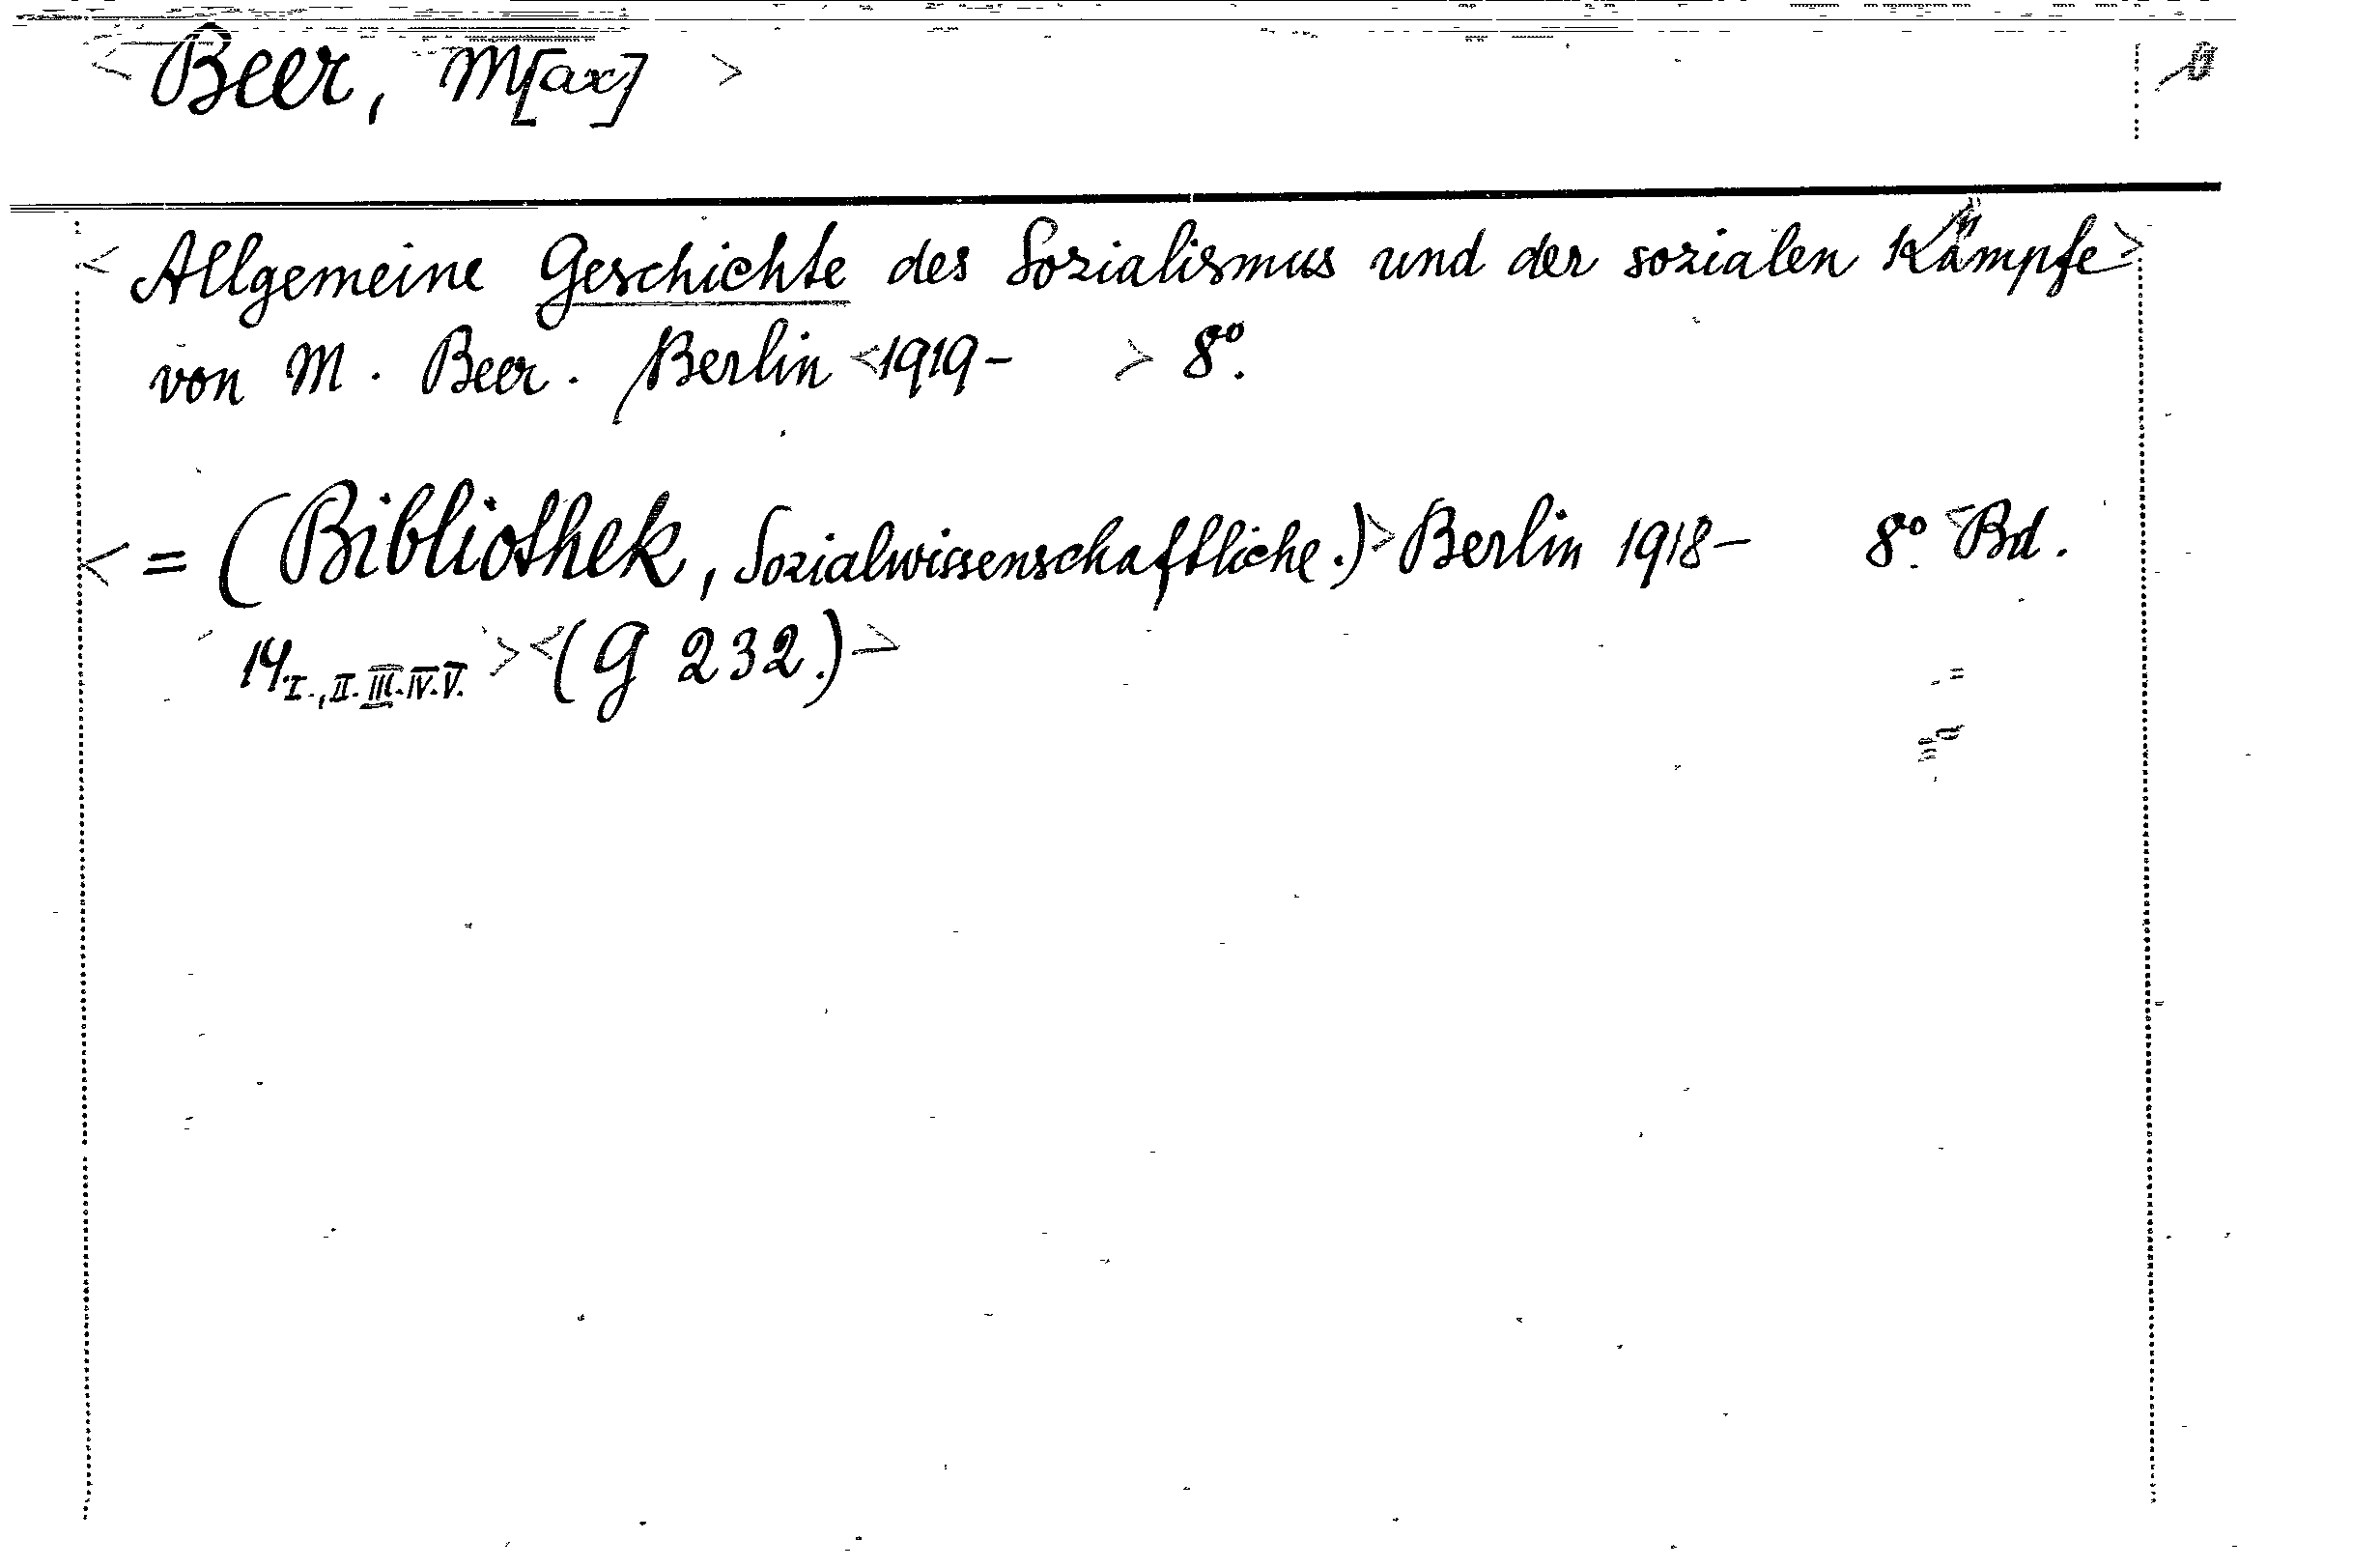 < Beer, M[ax] >
< Allgemeine Geschichte des Sozialismus und der sozialen Kämpfe >
von M. Beer. Berlin <1919- > 8°.
< = (Bibliothek, Sozialwissenschaftliche.) > Berlin 1918- 8°. < Bd.
14 I., II. III. IV. V. > < (G 232.) >